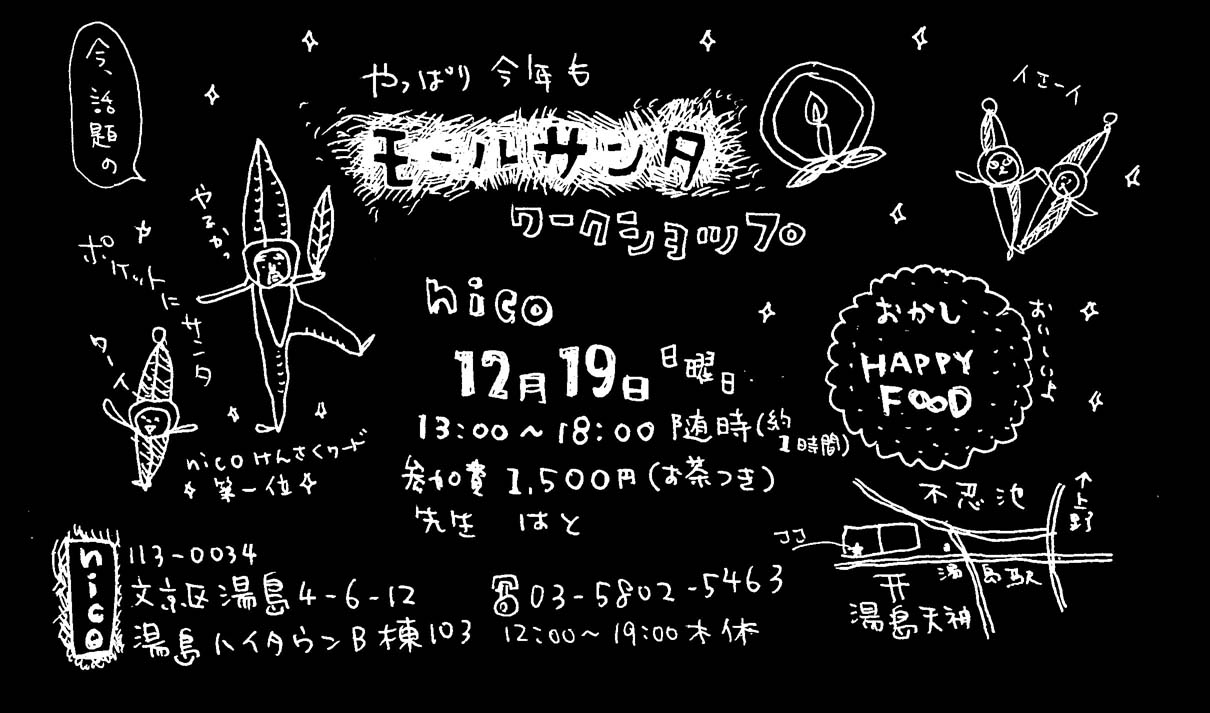 今、話題の
やっぱり 今年も
モールサンタ
ワークショップ
イエーイ
やるかっ
ポケットに
サンタ
ターイ
nico けんさくワード
第一位
nico
12月19日 日曜日
13:00~18:00 随時(約
1時間)
参加費 1,500円(お茶つき)
先生 はと
おかし
HAPPY
FOOD
おいしいよ
不忍池
↑上野
ココ
湯島駅
湯島天神
nico
113-0034
文京区湯島4-6-12
湯島ハイタウンB棟103
☎03-5802-5463
12:00~19:00 木休